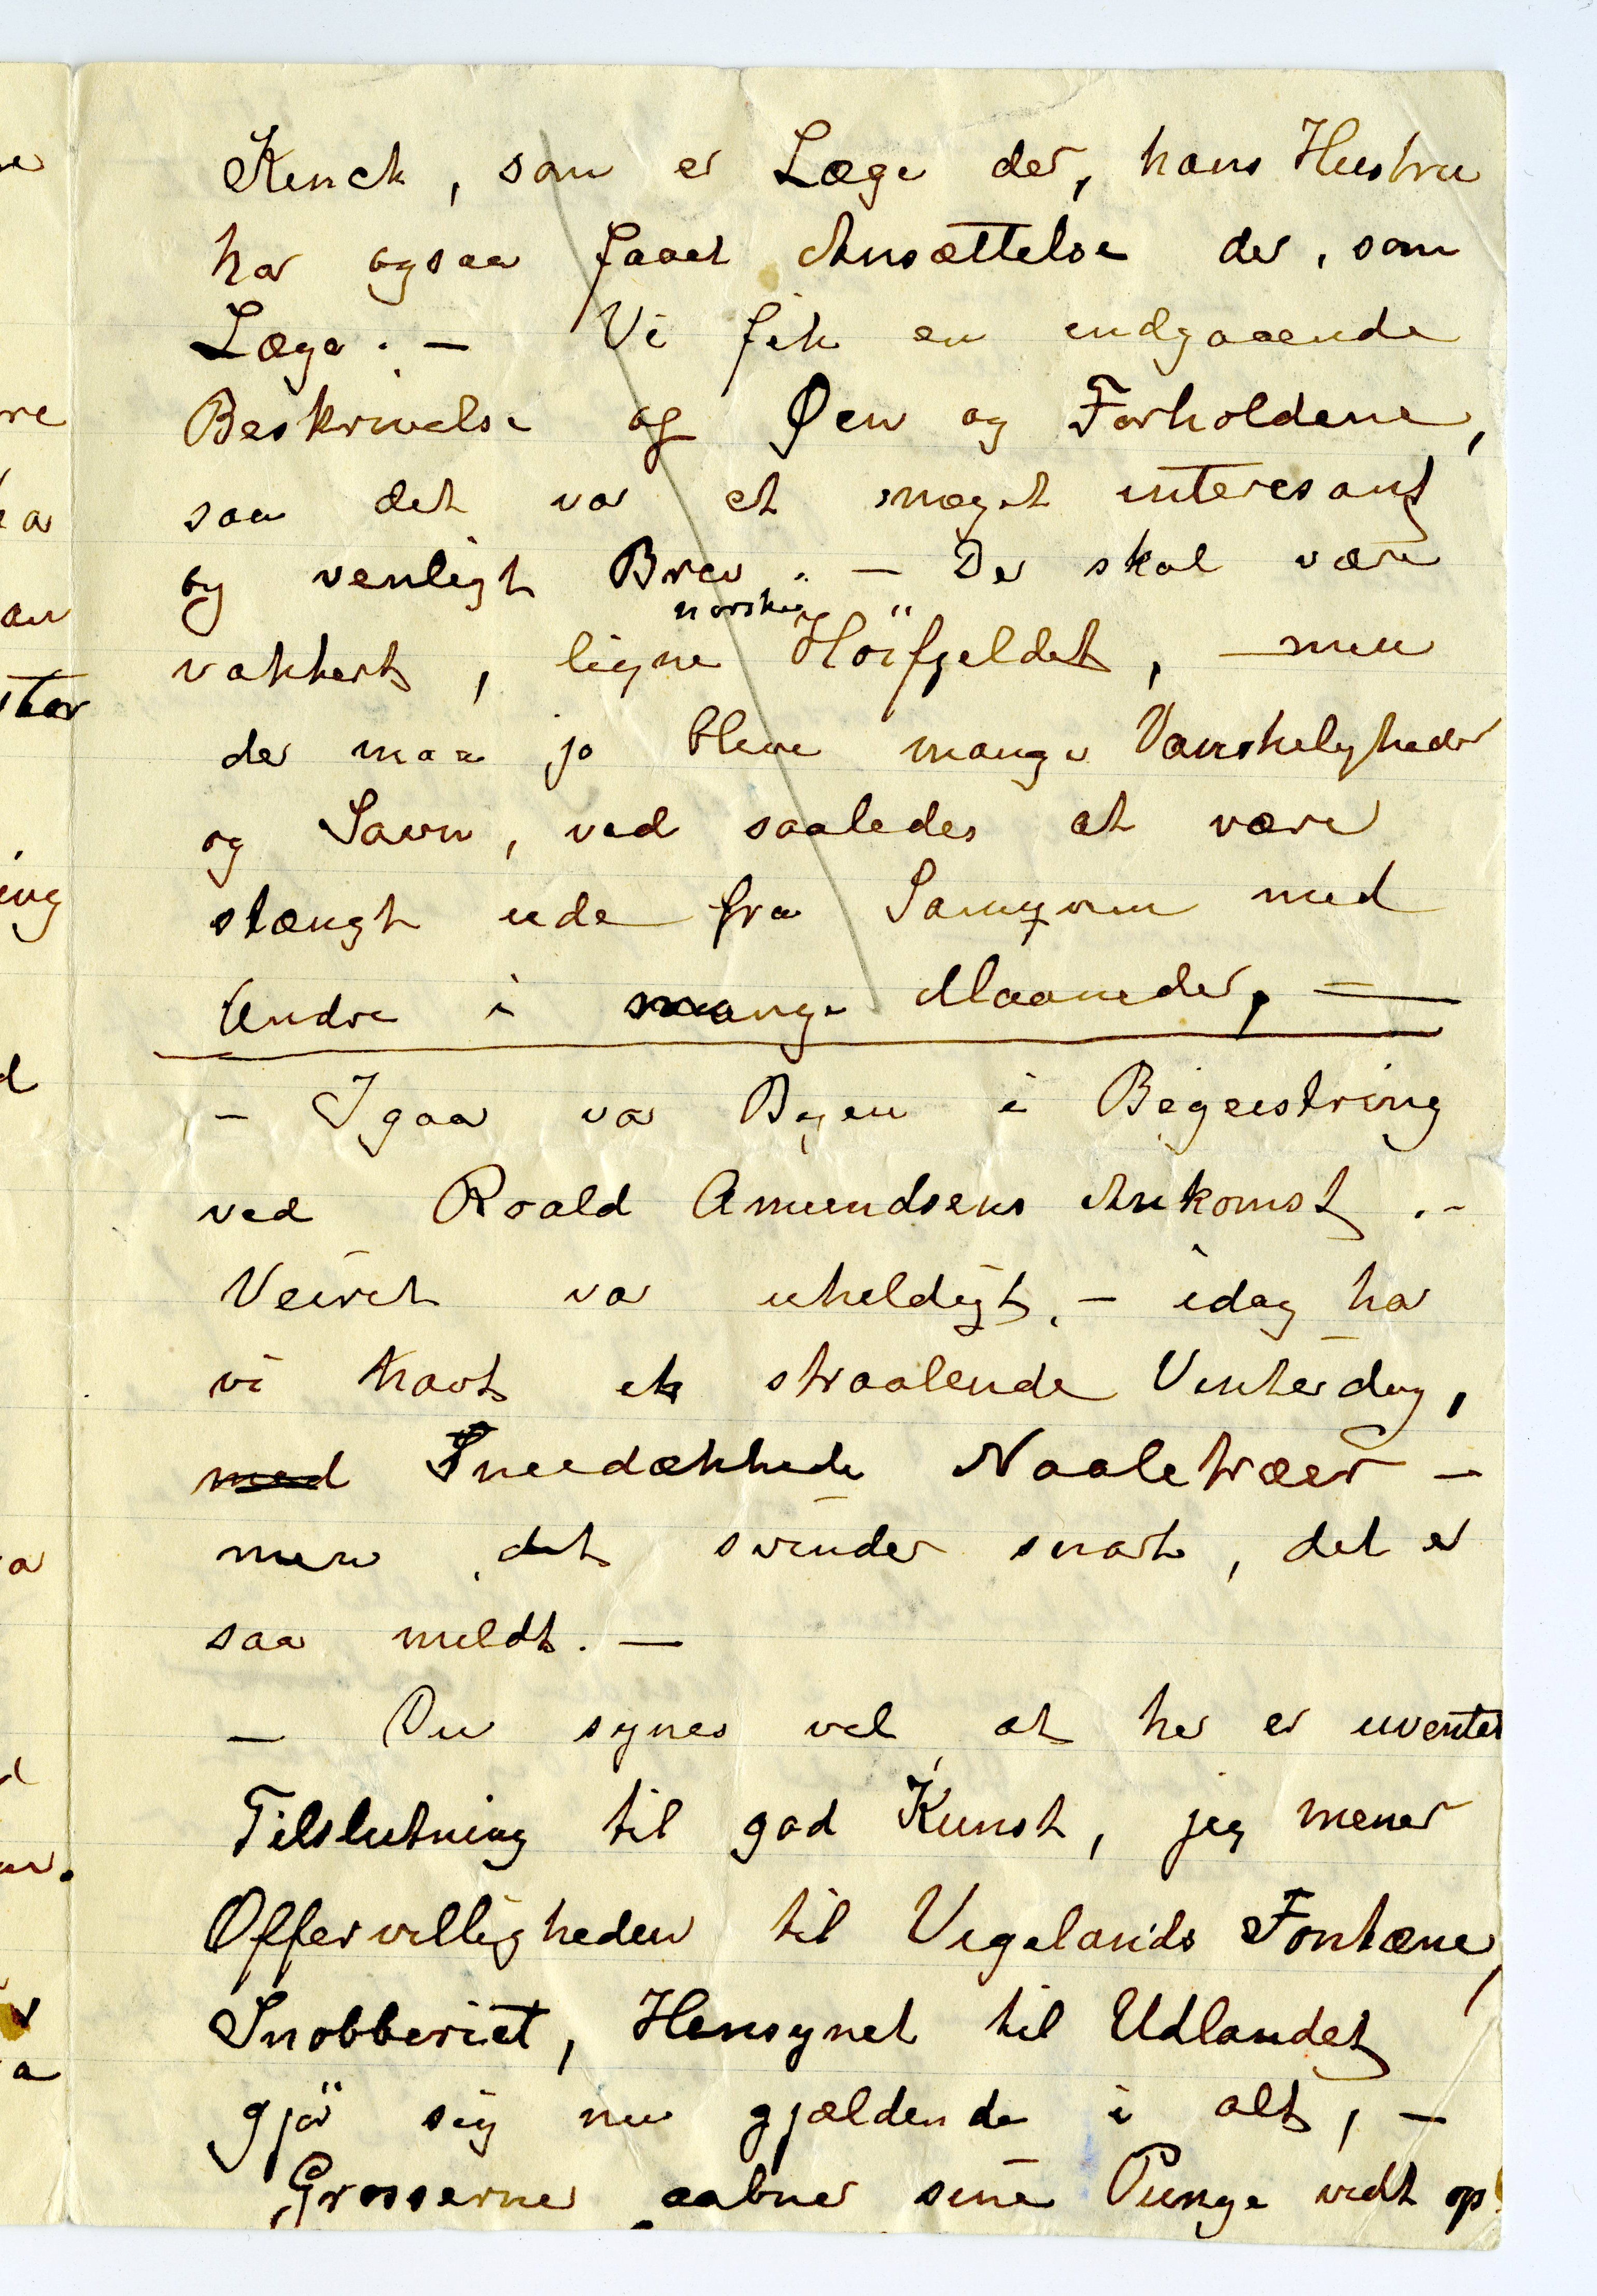 Kinck, som er Læge der, hans Hustru
har ogsaa faaet Ansættelse der, som
Læge. – Vi fik en indgaaende
Beskrivelse af Øen og Forholdene,
saa det var et meget interesant
og venligt Brev. – Der skal være
norske
vakkert, ligne Höifjeldet, – men
der maa jo blive mange Vanskeligheder
og Savn, ved saaledes at være
stængt ude fra Samqvem med
Andre i mange Maaneder, –
– Igaar var Byen i Begeistring
ved Roald Amundsens Ankomst. –
Veiret var uheldigt, – idag har
vi havt en straalende Vinterdag,
med Sneedækkede Naaletræer –
men det svinder snart, det er
saa mildt. –
– Du synes vel at her er uventet
Tilslutning til god Kunst, jeg mener
Offervilligheden til Vigelands Fontæne,
Snobberiet, Hensynet til Udlandet
gjör sig nu gjældende i alt, –
Grossererne aabner sine Punge vidt op!